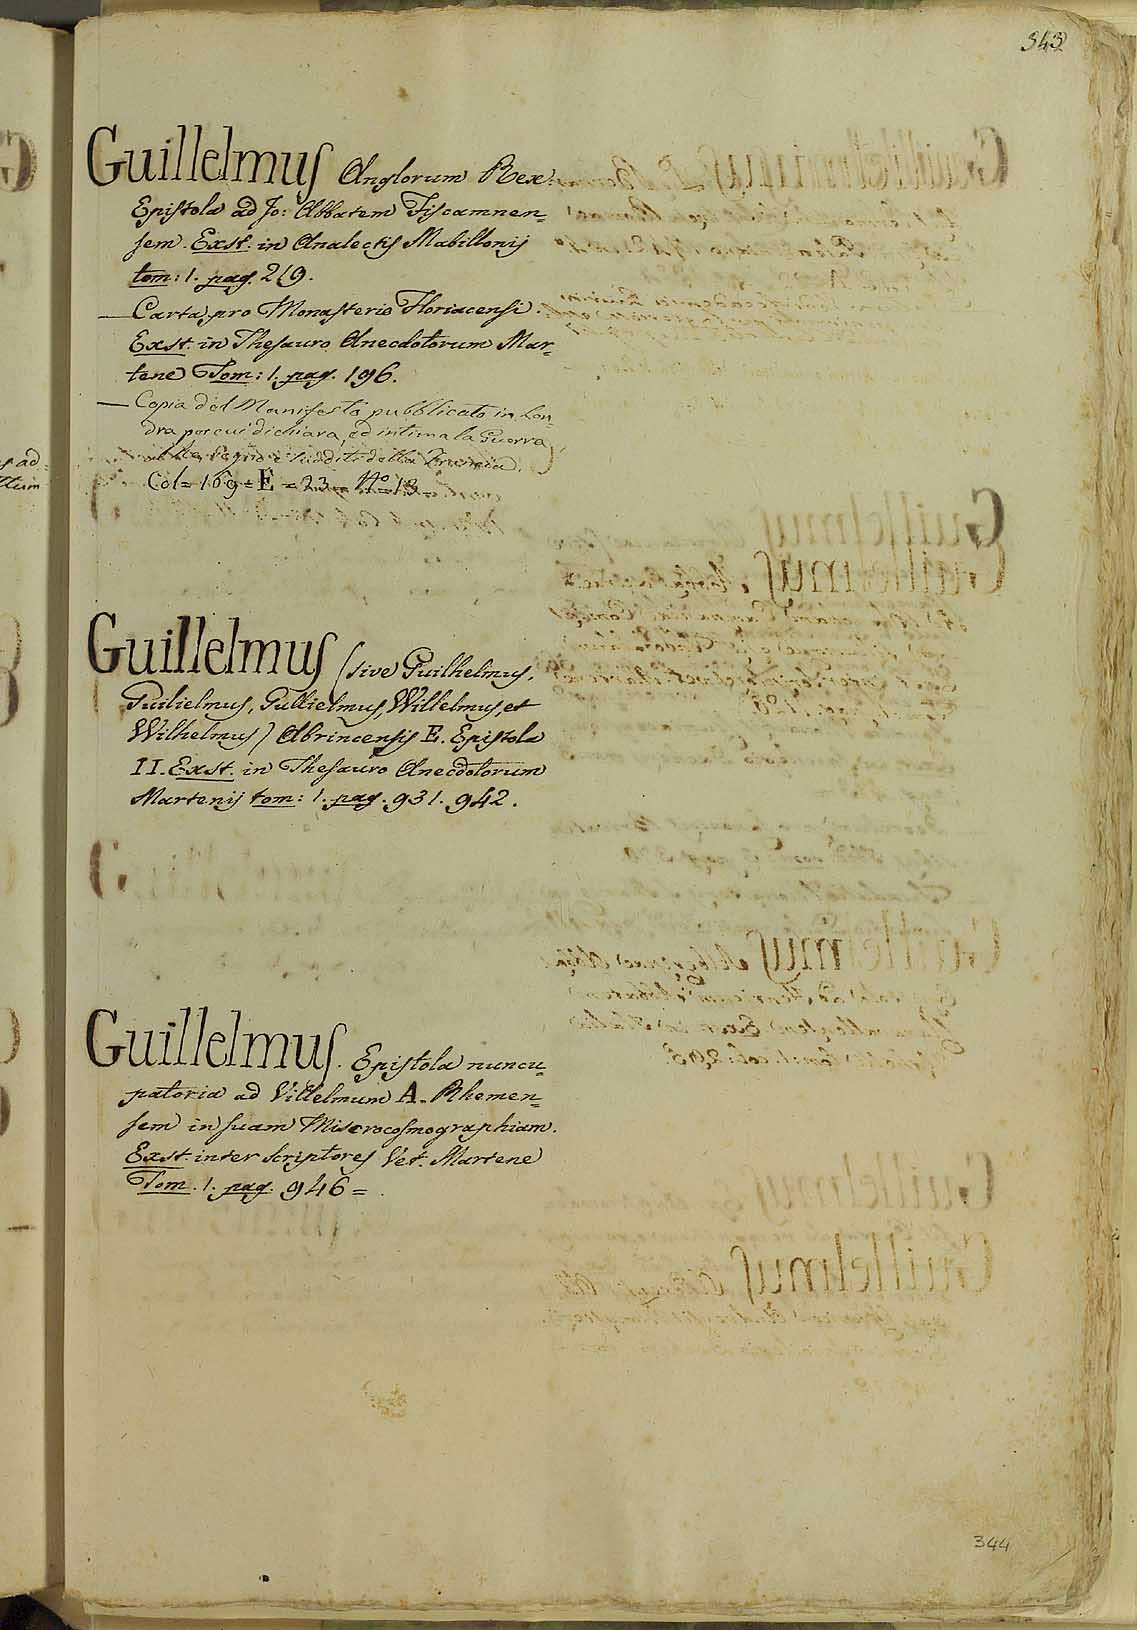 343
Guillelmus Anglorum Rex.
Epistola ad Jo: Abbatem Fiscamnen=
sem. Exst. in Analectis Mabillonij
tom: 1. pag. 219.
— Carta pro Monasterio Floriacensi.
Exst. in Thesauro Anecdotorum Mar=
tene Tom: 1. pag. 196.
— Copia del Manifesto pubblicato in Lon=
dra, per cui dichiara, ed intima la Guerra
e sudditi della Francia.
Col= 169 = E = 23 = No. 13 =
Guillelmus (sive Guilhelmus,
Guilielmus, Gullielmus, Willelmus, et
Wilhelmus) Abrincensis E. Epistola
II. Exst. in Thesauro Anecdotorum
Martenij tom: 1. pag. 931. 942.
Guillelmus. Epistola nuncu=
patoria ad Villelmum A. Rhemen=
sem in suam Microcosmographiam.
Exst. inter scriptores Vet. Martene
Tom. 1. pag. 946 =
344